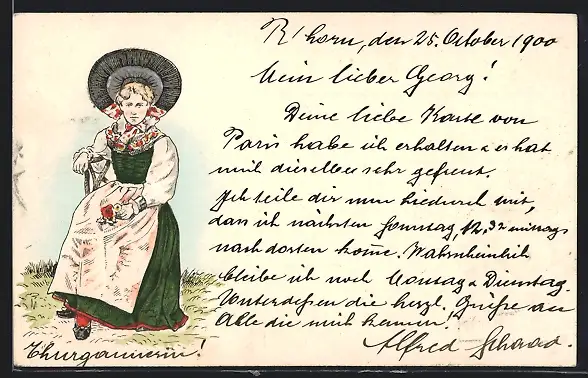 R'horn, den 25. October 1900
Mein lieber Georg!
Deine liebe Karte von
Paris habe ich erhalten & es hat
mich dieselbe sehr gefreut.
Ich teile dir nun hiedurch mit,
dass ich nächsten Sonntag, 12,32 mittags
nach dorten kom̅e. Wahrscheinlich
bleibe ich noch Montag & Dienstag.
Unterdeßen die herzl. Grüße an
Alle die mich kennen!
Alfred Schaad.
Thurgauerin!